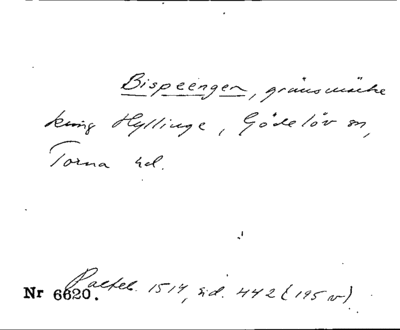 Bispeengen, gränsmärke
kring Hyllinge, Gödelöv sn,
Torna hd.
Palteb. 1514, sid. 442 (195 v)
Nr 6620.